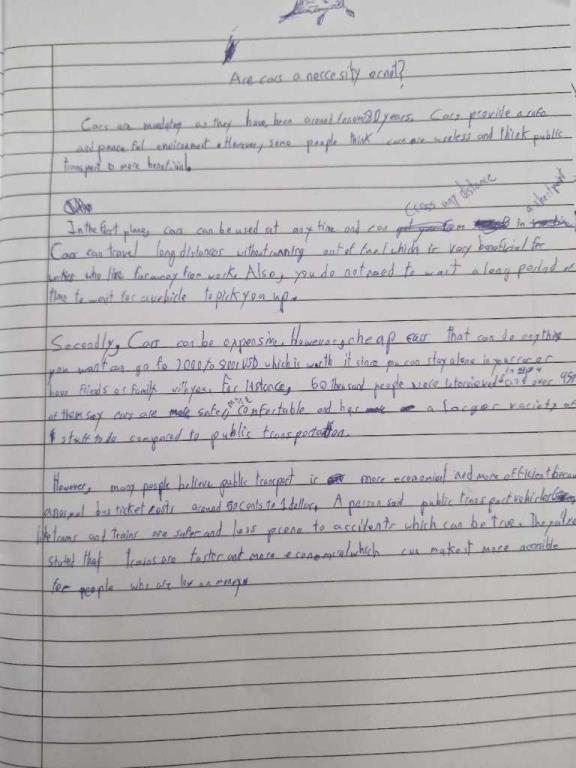 Are cars a neccesity or not?
Cars are mandatory as they have been around for 80 years. Cars provide a safe
and peace ful environment. However, some people think cars are useless and think public
transport is more benefical.
cross any distance
In the first place, cars can be used at any time and can in
Cars can travel long distances without running out of fuel which is very beneficial for
who live far away from works. Also, you do not need to wait a long period of
time to wait for a vehicle to pick you up.
Secondly, Cars can be expensive. However, cheap cars that can do anything
you want can go to 2000 to USD which is worth it since you can stay alone in your car or
have friends or family with you. For Instance, 60 thousand people were interviewed and over
of them say cars are safer, comfortable and has a larger variety of
stuff to do compared to public transportation.
However, many people believe public transport is more economical and more efficient because
a normal bus ticket costs around 50 cents to 1 dollar. A person said public transport vehicles
like trams and trains are safer and less prone to accidents which can be true. They also
stated that trains are faster and more economical which can make it more accesible
for people who are low on money.